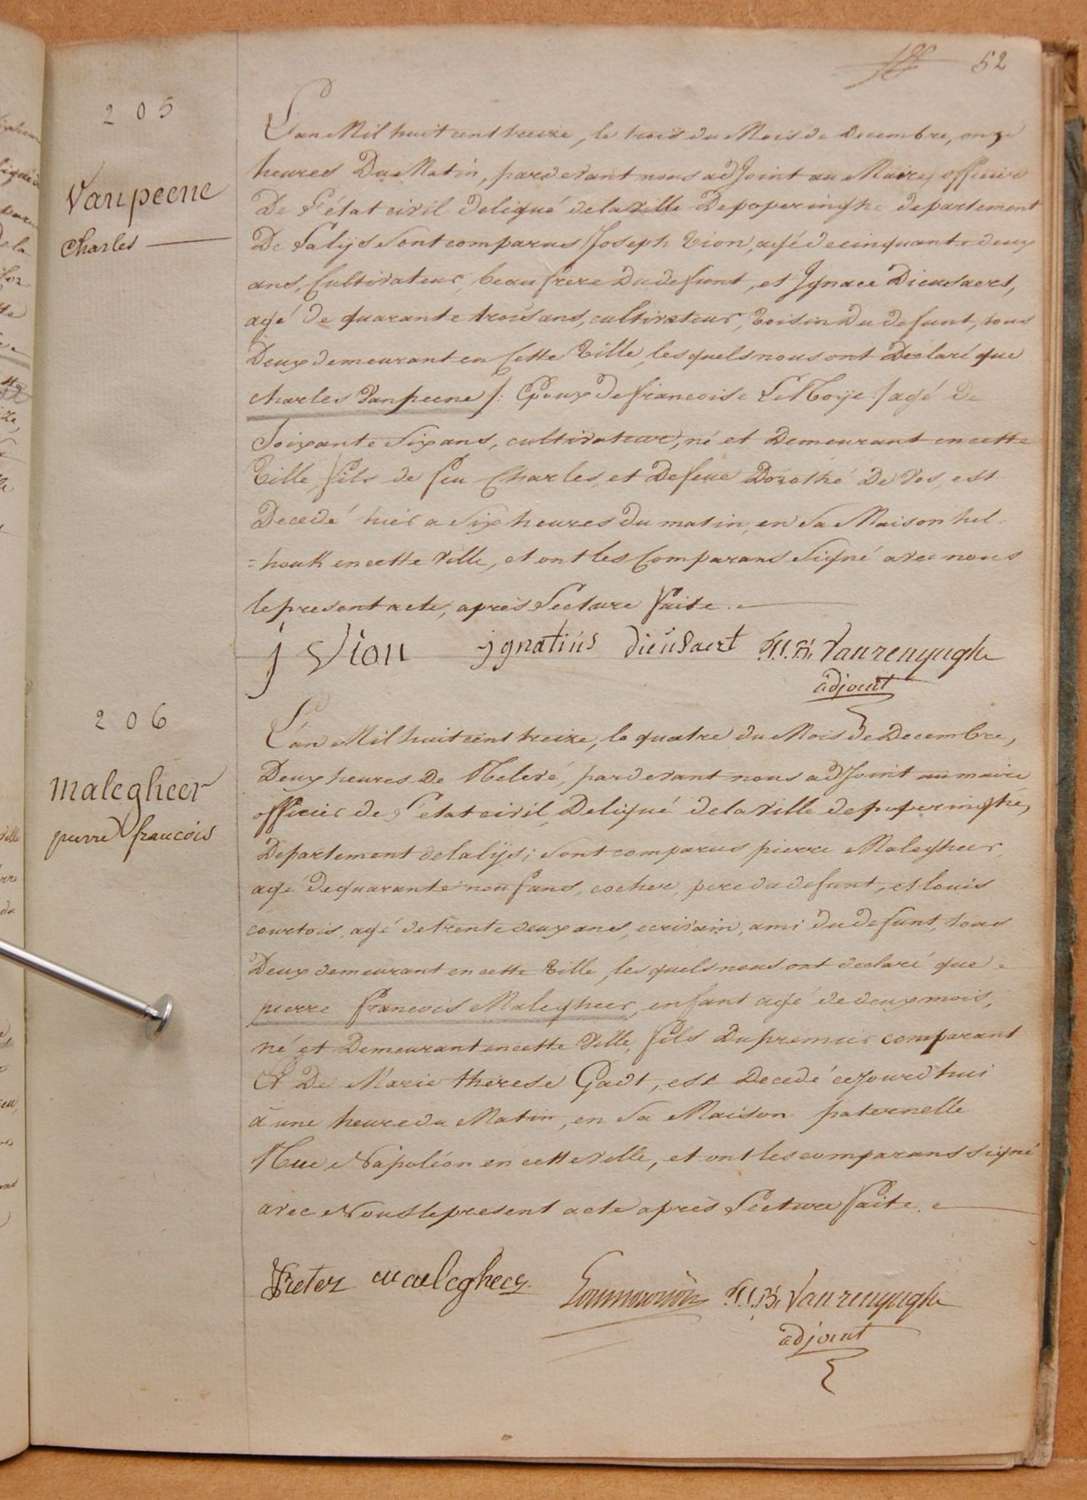 52
205
Vanpeene
Charles
L'an Mil huit cent treize, le trois du Mois de Decembre, onze
heures Du Matin, pardevant nous adjoint au Maire officier
De L'état civil deliqué de la ville De poperinghe departement
De Lalijs Sont comparus Joseph Vion, agé de cinquante deux
ans, Cultivateur, beau frere Du defunt, et Jgnace Dieusaert,
agé de quarante trois ans, cultivateur, Voisin du defunt, tous
Deux demeurant en Cette Ville, les quels nous ont Declaré que
charles Vanpeene /: Epoux de francoise LeNoije / agé de
Soixante Six ans, cultivateur, né et Demeurant en cette
Ville, fils de feu Charles, et De feue Dorothé De Vos, est
Decedé hier a Six heures du matin, en Sa Maison hel
= houk en cette ville, et ont les Comparans Signé avec nous
le present acte, après Lecture faite.
j Vion ignatius Dieusaert Vanrenynghe
adjoint
206
Malegheer
pierre francois
L'an Mil huit cent treize, le quatre du Mois de Decembre,
Deux heures De Relevé, pardevant nous adjoint au maire
officier de L'etat civil Deliqué de la ville de poperinghe,
Departement de la lijs; Sont comparus pierre Malegheer,
agé de quarante neuf ans, cocher, pere du defunt, et Louis
courtois, agé de trente deux ans, ecrivain, ami du defunt, tous
Deux demeurant en cette Ville, les quels nous ont declaré que
pierre francois Malegheer, enfant agé de deux mois,
né et Demeurant en cette Ville, fils Du premier comparant
Et De Marie therese Gadt, est Decedé cejourd'hui
à une heure du Matin, en Sa Maison paternelle
Rue Napoléon en cette ville, et ont les comparans signé
avec Nous le present acte après Lecture faite.
Pieter Malegheer Vanrenynghe
adjoint